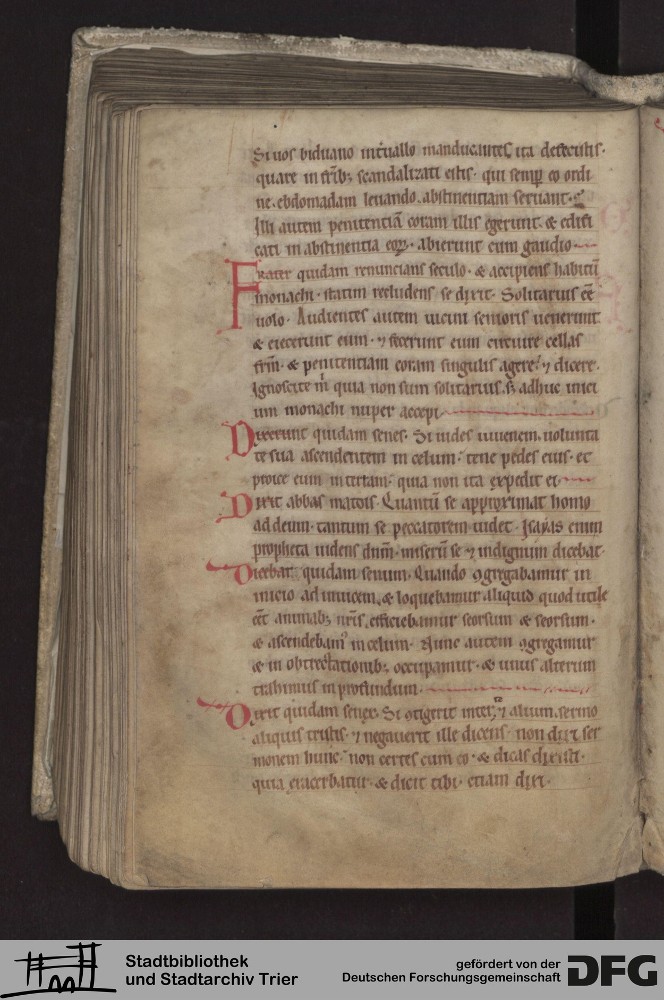 Si uos biduano int̄uallo manducantes, ita defecistis·
quare in fr̄ib; scandalizati estis· qui semp̄ eo ordi
ne· ebdomadam leuando· abstinentiam seruant·
Illi autem penitentiā coram illis egerunt· & edifi
cati in abstinentia eoꝝ· abierunt cum gaudio·
Frater quidam renuncians seculo· & accipiens habitū
monachi· statim recludens se dixit· Solitarius eē
uolo· Audientes autem uicini seniores uenerunt
& eiecerunt eum· ⁊ fecerunt eum circuire cellas
fr̄m· & penitentiam coram singulis agere· ⁊ dicere·
Ignoscite m̄ quia non sum solitarius· s; adhuc inici
um monachi nuper accepi
Dixerunt quidam senes· Si uides iuuenem· uolunta
te sua ascendentem in celum· tene pedes eius· et
proice eum in terram· quia non ita expedit ei·
Dixit abbas matois· Quantū se approximat homo
ad deum· tantum se peccatorem uidet· Isayas enim
propheta uidens dn̄m· miserū se ⁊ indignum dicebat·
Dicebat quidam senum· Quando ꝯgregabamur in
inicio ad inuicem, & loquebamur aliquid quod utile
eēt animab; nr̄is, efficiebamur seorsum & seorsum·
& ascendebam᷒ in celum· Nunc autem ꝯgregamur
& in obtrectationib; occupamur· & unus alterum
trahimus in profundum·
Dixit quidam senex· Si ꝯtigerit inter te ⁊ alium· sermo
aliquis tristis· ⁊ negauerit ille dicens· non dixi ser
monem hunc· non certes cum eo· & dicas dixisti·
quia exacerbatur· & dicit tibi· etiam dixi·
Stadtbibliothek
und Stadtarchiv Trier
gefördert von der
Deutschen Forschungsgemeinschaft
DFG